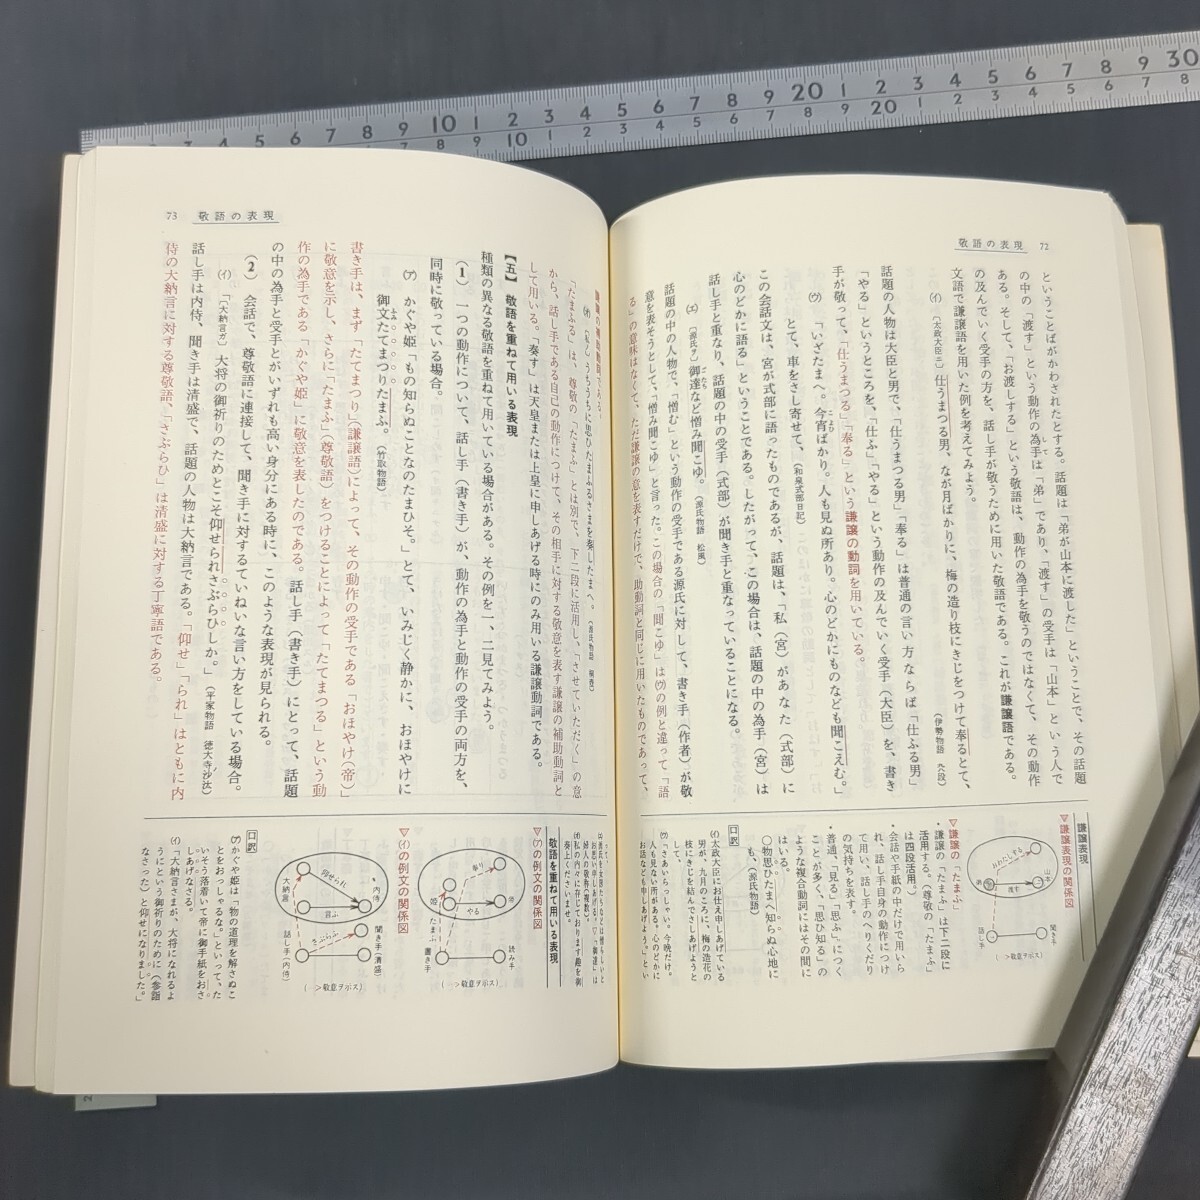 敬語の表現 72
ということばがかわされたとする。話題は「弟が山本に渡した」ということで、その話題
の中の「渡す」という動作の為手は「弟」であり、「渡す」の受手は「山本」という人で
ある。そして、「お渡しする」という敬語は、動作の為手を敬うのではなくて、その動作
の及んでいく受手の方を、話し手が敬うために用いた敬語である。これが謙譲語である。
文語で謙譲語を用いた例を考えてみよう。
(イ) 〔太政大臣ニ〕仕うまつる男、なが月ばかりに、梅の造り枝にきじをつけて奉るとて、
(伊勢物語 九八段)
話題の人物は大臣と男で、「仕うまつる男」「奉る」は普通の言い方ならば「仕ふる男」
「やる」というところを、「仕ふ」「やる」という動作の及んでいく受手(大臣)を、書き
手が敬って、「仕うまつる」「奉る」という謙譲の動詞を用いている。
(ウ) 「いざたまへ。今宵ばかり。人も見ぬ所あり。心のどかにものなども聞こえむ。」
とて、車をさし寄せて、(和泉式部日記)
この会話文は、宮が式部に語ったものであるが、話題は、「私(宮)があなた(式部)に
心のどかに語る」ということである。したがって、この場合は、話題の中の為手(宮)は
話し手と重なり、話題の中の受手(式部)が聞き手と重なっていることになる。
(エ) 〔源氏ヲ〕御達など憎み聞こゆ。(源氏物語 松風)
話題の中の人物で、「憎む」という動作の受手である源氏に対して、書き手(作者)が敬
意を表そうとして、「憎み聞こゆ」と言った。この場合の「聞こゆ」は(ウ)の例と違って「語
る」の意味はなくて、ただ謙譲の意を表すだけで、助動詞と同じに用いたものであって、
謙譲表現
▽謙譲表現の関係図
おわたしする
弟
渡す
山本
話し手
聞き手
(-->敬意ヲ示ス)
▽謙譲の「たまふ」
・謙譲の「たまふ」は下二段に
活用する。(尊敬の「たまふ」
は四段活用。)
・会話や手紙の中だけで用いら
れ、話し手自身の動作につけ
て用い、話し手のへりくだり
の気持ちを表す。
・普通、「見る」「思ふ」につく
ことが多く、「思ひ知る」の
ような複合動詞にはその間に
はいる。
○物思ひたまへ知らぬ心地に
も、(源氏物語)
口訳
(イ)太政大臣にお仕え申しあげている
男が、九月のころに、梅の造花の
枝にきじを結んでさしあげようと
して、
(ウ)「さあいらっしゃい。今晩だけ。
人も見ない所がある。心のどかに
お話なども申しあげよう。」とい
73 敬語の表現
から、話し手である自己の動作につけて、その相手に対する敬意を表す謙譲の補助動詞と
して用いる。「奏す」は天皇または上皇に申しあげる時にのみ用いる謙譲動詞である。
【五】 敬語を重ねて用いる表現
種類の異なる敬語を重ねて用いている場合がある。その例を一、二見てみよう。
(1) 一つの動作について、話し手(書き手)が、動作の為手と動作の受手の両方を、
同時に敬っている場合。
(ア) かぐや姫「もの知らぬことなのたまひそ。」とて、いみじく静かに、おほやけに
御文たてまつりたまふ。(竹取物語)
書き手は、まず「たてまつり」(謙譲語)によって、その動作の受手である「おほやけ(帝)」
に敬意を示し、さらに「たまふ」(尊敬語)をつけることによって「たてまつる」という動
作の為手である「かぐや姫」に敬意を表したのである。話し手(書き手)にとって、話題
の中の為手と受手とがいずれも高い身分にある時に、このような表現が見られる。
(2) 会話で、尊敬語に連接して、聞き手に対するていねいな言い方をしている場合。
(イ) 「〔大納言ガ〕大将の御祈りのためとこそ仰せられさぶらひしか。」(平家物語 徳大寺沙汰)
話し手は内侍、聞き手は清盛で、話題の人物は大納言である。「仰せ」「られ」はともに内
侍の大納言に対する尊敬語、「さぶらひ」は清盛に対する丁寧語である。
奏上くださいませ。
敬語を重ねて用いる表現
▽(ア)の例文の関係図
奉り
やる
姫
帝
たまふ
書き手
読み手
(-->敬意ヲ示ス)
▽(イ)の例文の関係図
仰せられ
言ふ
大納言
内侍
さぶらふ
話し手(内侍)
聞き手(清盛)
(-->敬意ヲ示ス)
口訳
(ア)かぐや姫は「物の道理を解さぬこ
とをおっしゃるな。」といって、た
いそう落着いて帝に御手紙をおさ
しあげなさる。
(イ)「大納言さまが、大将になれるよ
うにという御祈りのために〈参詣
なさった〉と仰せになりました。」